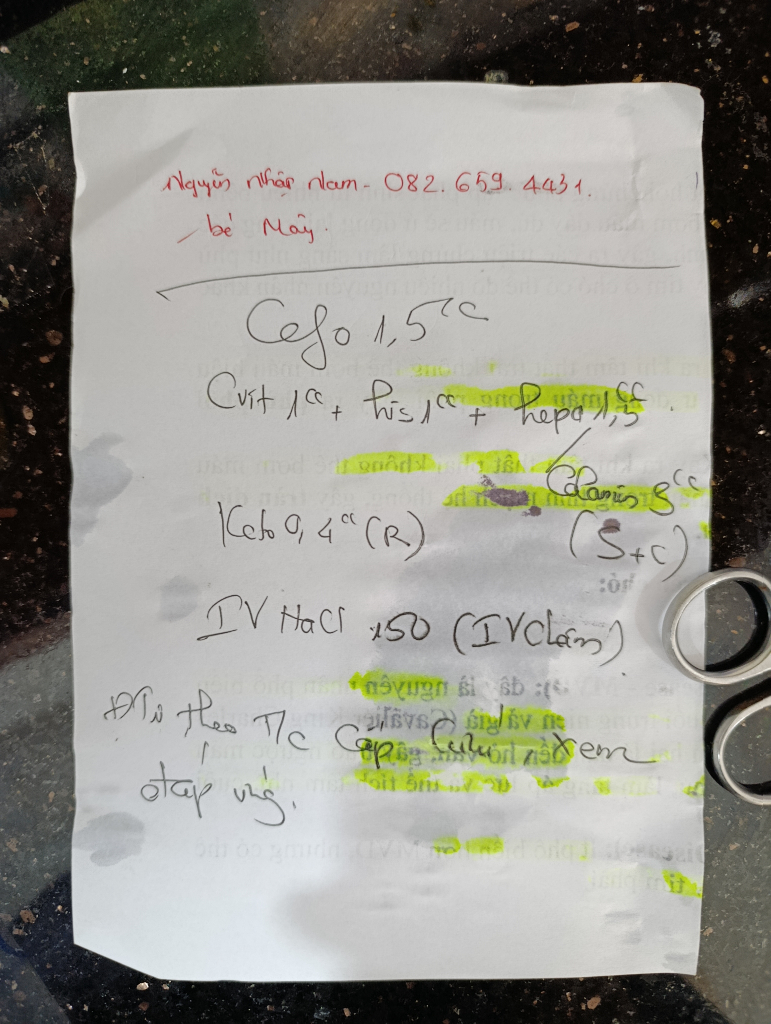 Nguyễn Nhập Nam - 082.659.4431.
bé Mây.
Cefo 1,5cc
Cvit 1cc + his 1cc + hepa 1,5cc.
Calamin 3cc
Keto 0,4cc (R)
(S+C)
IV NaCl x50 (IV Chậm)
Đtrị theo T/c Cấp Cứu xem
đáp ứng.